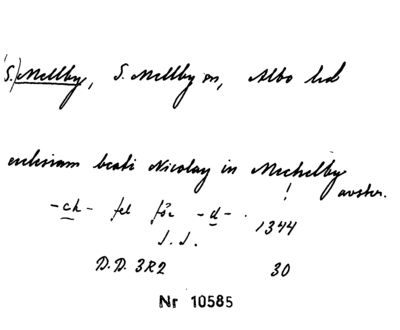 (S.) Mellby, S. Mellby sn, Albo hd
ecclesiam beati Nicolay in Mechelby
! avskr.
-ch- fel för -d-. 1344
J. J.
D.D. 3R2 30
Nr 10585